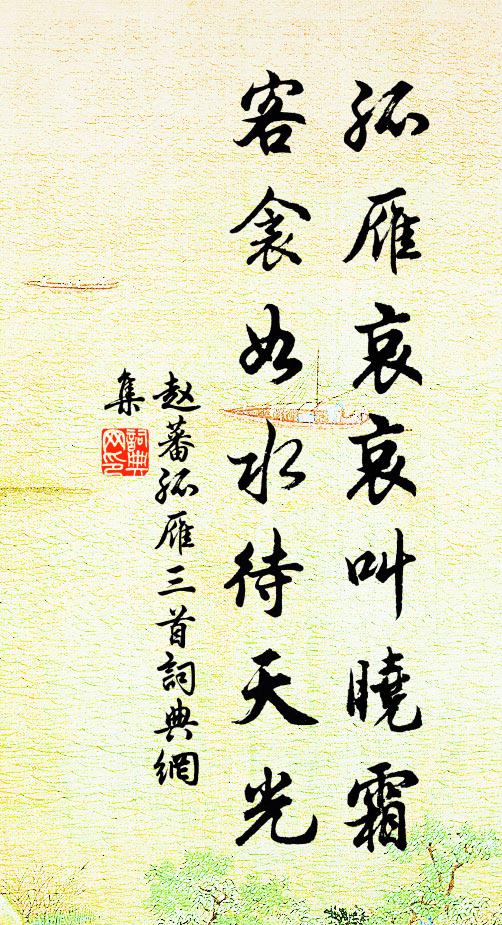 孤雁哀哀叫曉霜
客衾如水待天光
赵蕃孤雁三首詞典網
集
詞典